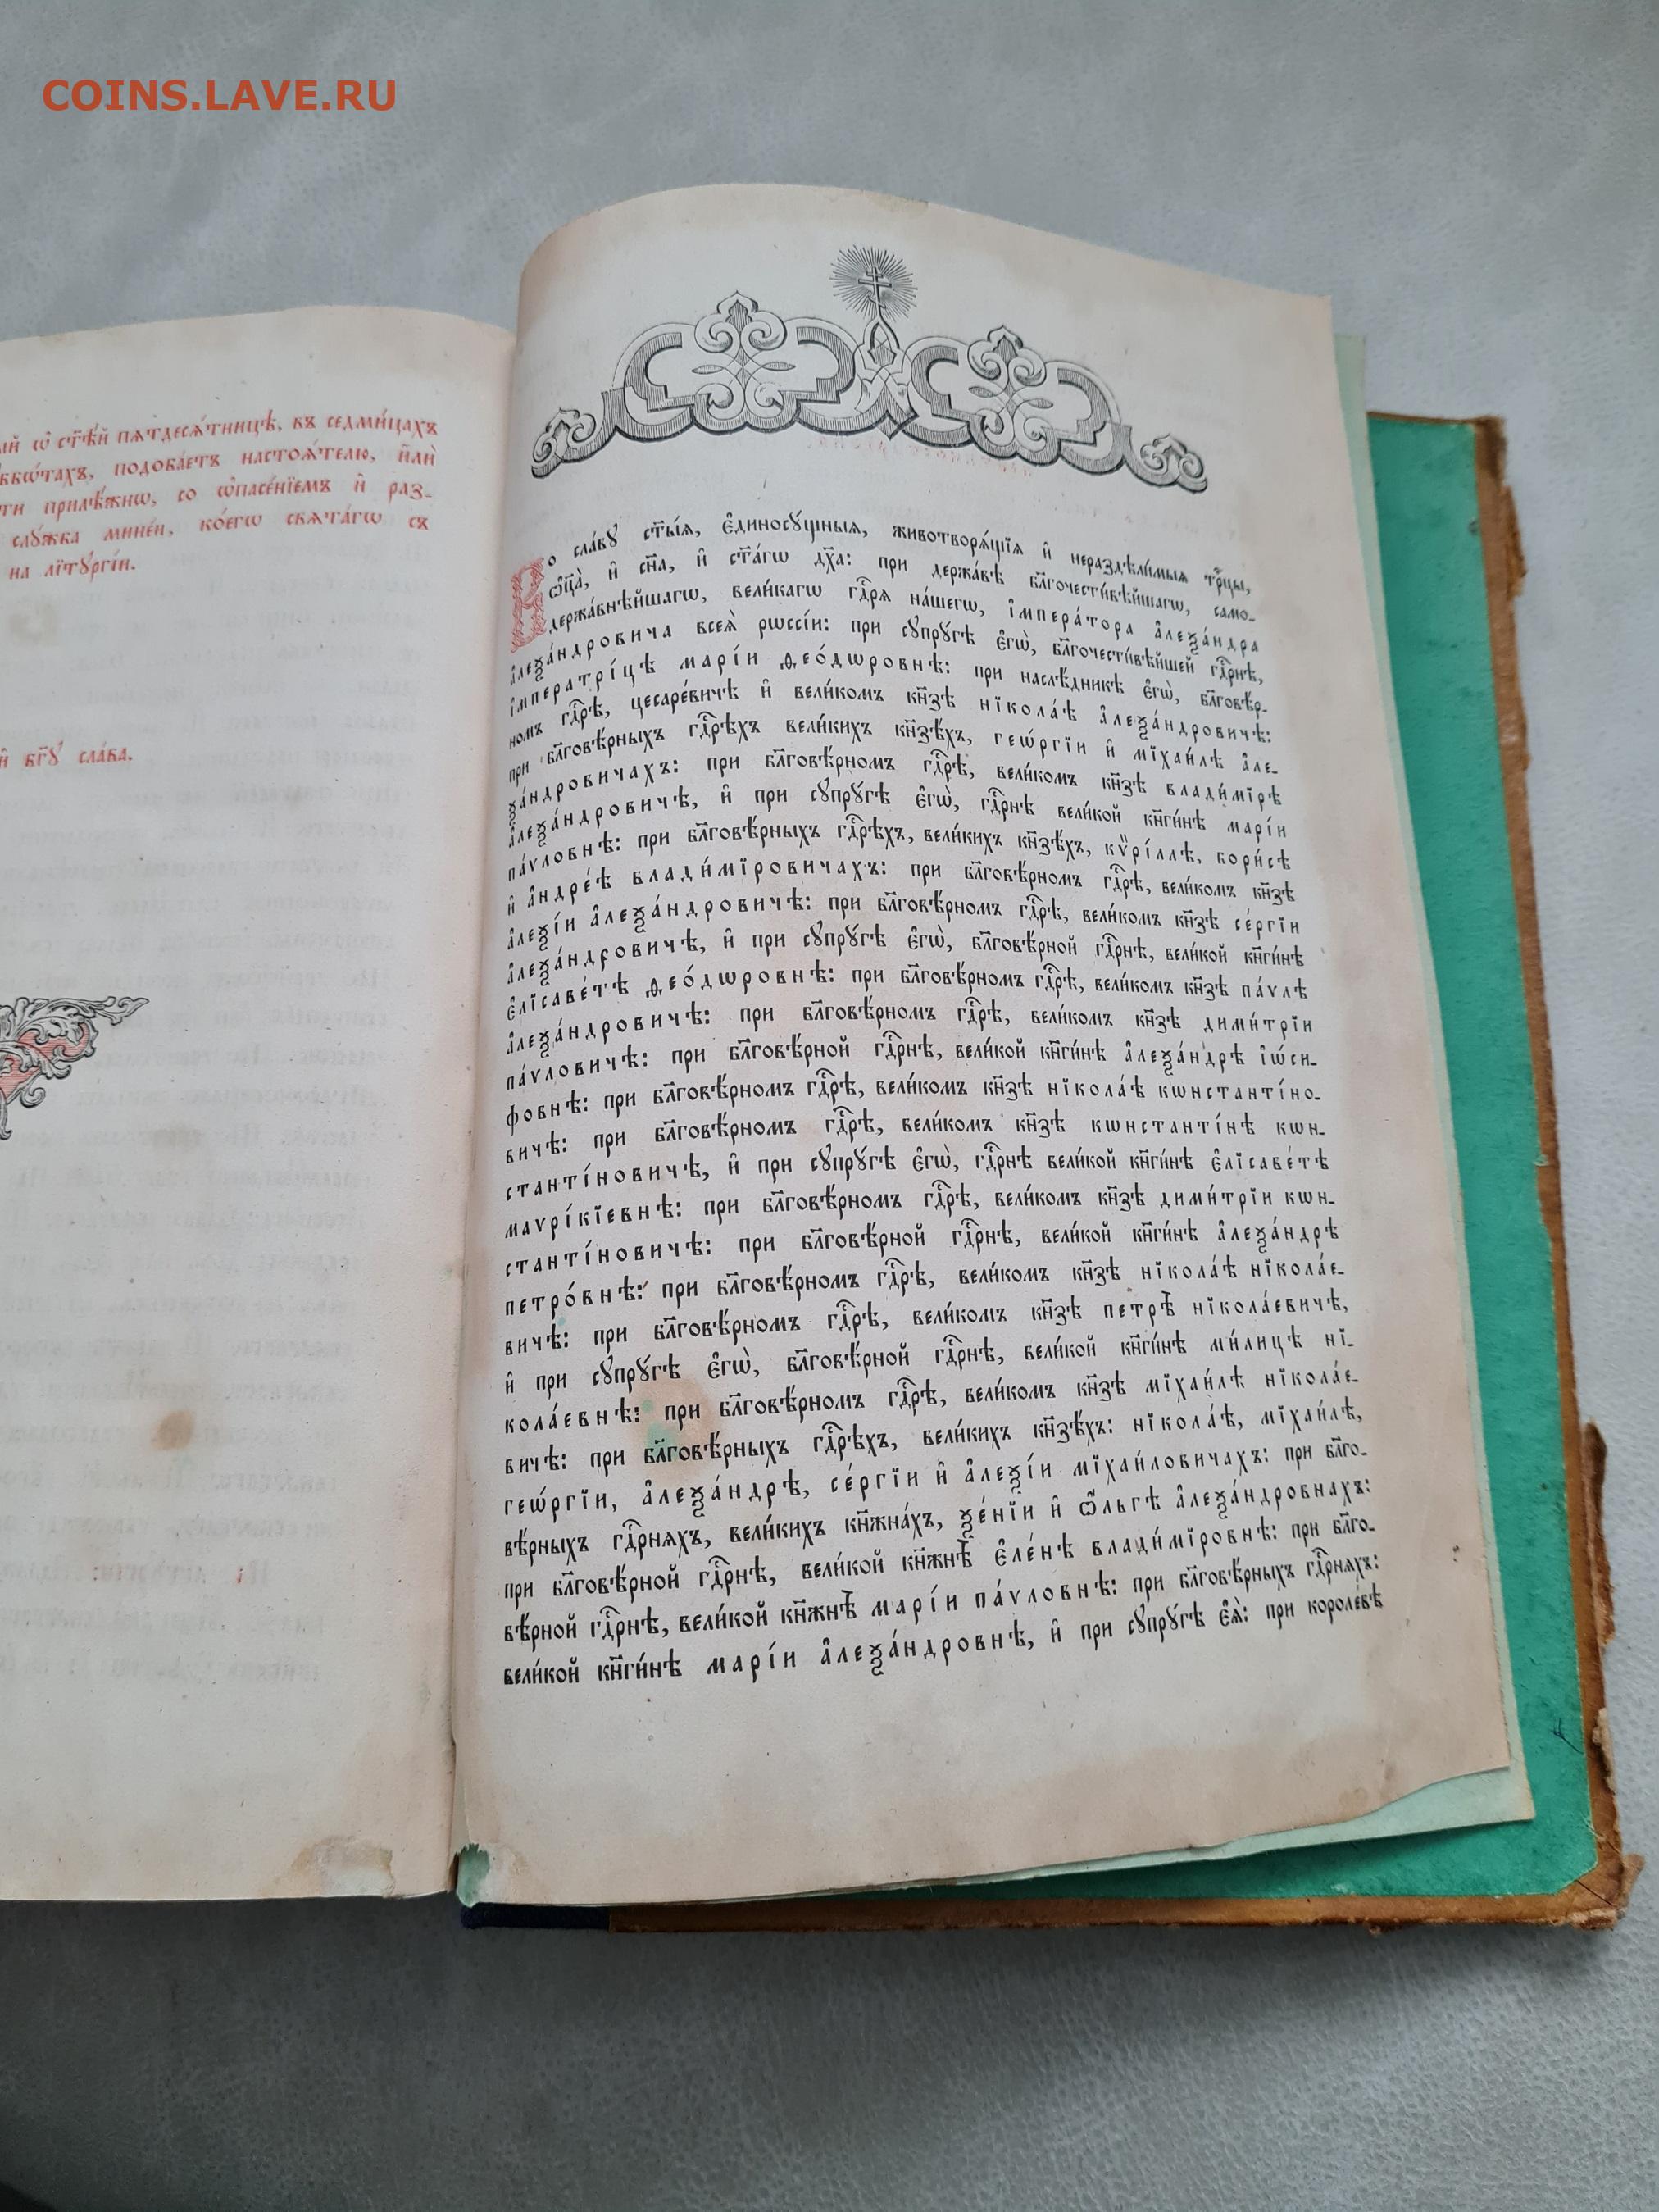 COINS.LAVE.RU
ѿ ст҃ѣ́й пѧтдесѧ́тницѣ, въ седми́цахъ
подоба́етъ настоѧ́телю, и҆лѝ
прилѣ́жнѡ, со ѡ҆пасе́нїемъ и҆ раз-
слꙋ́жба мине́и, ко́егѡ свѧта́гѡ съ
на лїтꙋргі́и.
и҆ бг҃ꙋ сла́ва.
Во сла́вꙋ ст҃ы́ѧ, є҆диносꙋ́щныѧ, животворѧ́щїѧ и҆ нераздѣли́мыѧ трⷪ҇цы,
ѻ҆ц҃а̀, и҆ сн҃а, и҆ ст҃а́гѡ дх҃а: при держа́вѣ бл҃гочести́вѣйшагѡ, само-
держа́внѣйшагѡ, вели́кагѡ гдⷭ҇рѧ на́шегѡ, і҆мпера́тора а҆леѯа́ндра
а҆леѯа́ндровича всеѧ̀ рѡссі́и: при сꙋпрꙋ́гѣ є҆гѡ̀, бл҃гочести́вѣйшей гдⷭ҇рнѣ,
і҆мператрі́цѣ марі́и ѳео́дѡровнѣ: при наслѣ́дникѣ є҆гѡ̀, бл҃говѣ́р-
номъ гдⷭ҇рѣ, цесаре́вичѣ и҆ вели́комъ кн҃зѣ нїкола́ѣ а҆леѯа́ндровичѣ:
при бл҃говѣ́рныхъ гдⷭ҇рѣхъ вели́кихъ кн҃зѣхъ, геѡ́ргїи и҆ мїхаи́лѣ а҆ле-
ѯа́ндровичахъ: при бл҃говѣ́рномъ гдⷭ҇рѣ, вели́комъ кн҃зѣ влади́мїрѣ
а҆леѯа́ндровичѣ, и҆ при сꙋпрꙋ́гѣ є҆гѡ̀, гдⷭ҇рнѣ вели́кой кн҃ги́нѣ марі́и
па́ѵловнѣ: при бл҃говѣ́рныхъ гдⷭ҇рѣхъ, вели́кихъ кн҃зѣхъ, кѵ̈рі́ллѣ, бори́сѣ
и҆ а҆ндре́ѣ влади́мїровичахъ: при бл҃говѣ́рномъ гдⷭ҇рѣ, вели́комъ кн҃зѣ
а҆леѯі́и а҆леѯа́ндровичѣ: при бл҃говѣ́рномъ гдⷭ҇рѣ, вели́комъ кн҃зѣ се́ргїи
а҆леѯа́ндровичѣ, и҆ при сꙋпрꙋ́гѣ є҆гѡ̀, бл҃говѣ́рной гдⷭ҇рнѣ, вели́кой кн҃ги́нѣ
є҆лїсаве́тѣ ѳео́дѡровнѣ: при бл҃говѣ́рномъ гдⷭ҇рѣ, вели́комъ кн҃зѣ па́ѵлѣ
а҆леѯа́ндровичѣ: при бл҃говѣ́рномъ гдⷭ҇рѣ, вели́комъ кн҃зѣ дими́трїи
па́ѵловичѣ: при бл҃говѣ́рной гдⷭ҇рнѣ, вели́кой кн҃ги́нѣ а҆леѯа́ндрѣ і҆ѡ́си-
фовнѣ: при бл҃говѣ́рномъ гдⷭ҇рѣ, вели́комъ кн҃зѣ нїкола́ѣ кѡнстанті́но-
вичѣ: при бл҃говѣ́рномъ гдⷭ҇рѣ, вели́комъ кн҃зѣ кѡнстанті́нѣ кѡн-
станті́новичѣ, и҆ при сꙋпрꙋ́гѣ є҆гѡ̀, гдⷭ҇рнѣ вели́кой кн҃ги́нѣ є҆лїсаве́тѣ
маѵрі́кїевнѣ: при бл҃говѣ́рномъ гдⷭ҇рѣ, вели́комъ кн҃зѣ дими́трїи кѡн-
станті́новичѣ: при бл҃говѣ́рной гдⷭ҇рнѣ, вели́кой кн҃ги́нѣ а҆леѯа́ндрѣ
петро́внѣ: при бл҃говѣ́рномъ гдⷭ҇рѣ, вели́комъ кн҃зѣ нїкола́ѣ нїкола́е-
вичѣ: при бл҃говѣ́рномъ гдⷭ҇рѣ, вели́комъ кн҃зѣ петрѣ̀ нїкола́евичѣ,
и҆ при сꙋпрꙋ́гѣ є҆гѡ̀, бл҃говѣ́рной гдⷭ҇рнѣ, вели́кой кн҃ги́нѣ ми́лицѣ нї-
кола́евнѣ: при бл҃говѣ́рномъ гдⷭ҇рѣ, вели́комъ кн҃зѣ мїхаи́лѣ нїкола́е-
вичѣ: при бл҃говѣ́рныхъ гдⷭ҇рѣхъ, вели́кихъ кн҃зѣхъ: нїкола́ѣ, мїхаи́лѣ,
геѡ́ргїи, а҆леѯа́ндрѣ, се́ргїи и҆ а҆леѯі́и мїхаи́ловичахъ: при бл҃го-
вѣ́рныхъ гдⷭ҇рнѧхъ, вели́кихъ кн҃жна́хъ, ѯе́нїи и҆ ѻ҆́льгѣ а҆леѯа́ндровнахъ:
при бл҃говѣ́рной гдⷭ҇рнѣ, вели́кой кн҃жнѣ̀ є҆ле́нѣ влади́мїровнѣ: при бл҃го-
вѣ́рной гдⷭ҇рнѣ, вели́кой кн҃жнѣ̀ марі́и па́ѵловнѣ: при бл҃говѣ́рныхъ гдⷭ҇рнѧхъ:
вели́кой кн҃ги́нѣ марі́и а҆леѯа́ндровнѣ, и҆ при сꙋпрꙋ́гѣ є҆ѧ̀: при короле́вѣ